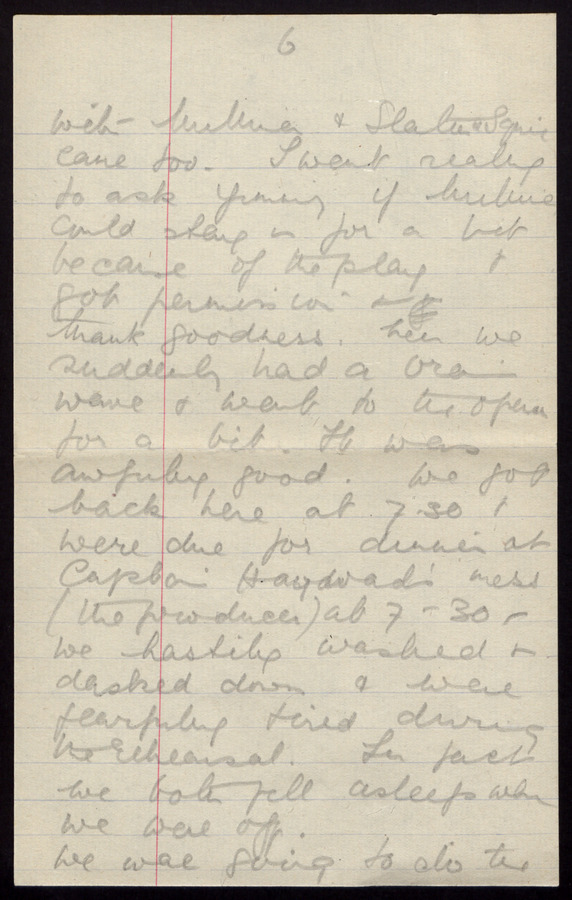 6
with & Slater & Squire
came too. I went really
to ask if
could stay in for a bit
because of the play &
got permission &
thank goodness. Then we
suddenly had a brain
wave & went to the opera
for a bit. It was
awfully good. We got
back here at 7-30 &
were due for dinner at
Captain Hayward's mess
(the producer) at 7-30 -
we hastily washed &
dashed down & were
fearfully tired during
the rehearsal. In fact
we both fell asleep when
we were off.
We were going to do the